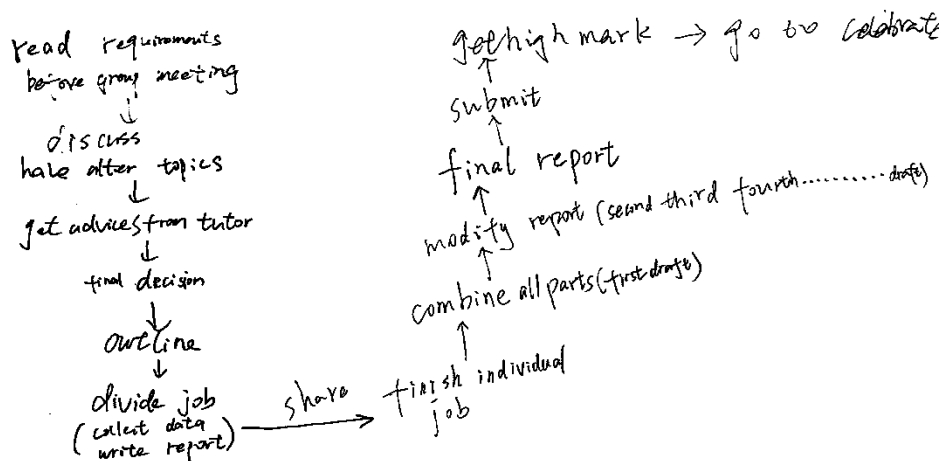 read requirements
before group meeting
discuss
have alter topics
get advices from tutor
final decision
outline
divide job
(collect data
write report)
share
finish individual
job
combine all parts (first draft)
modify report (second third fourth.......... draft)
final report
submit
get high mark → go to celebrate